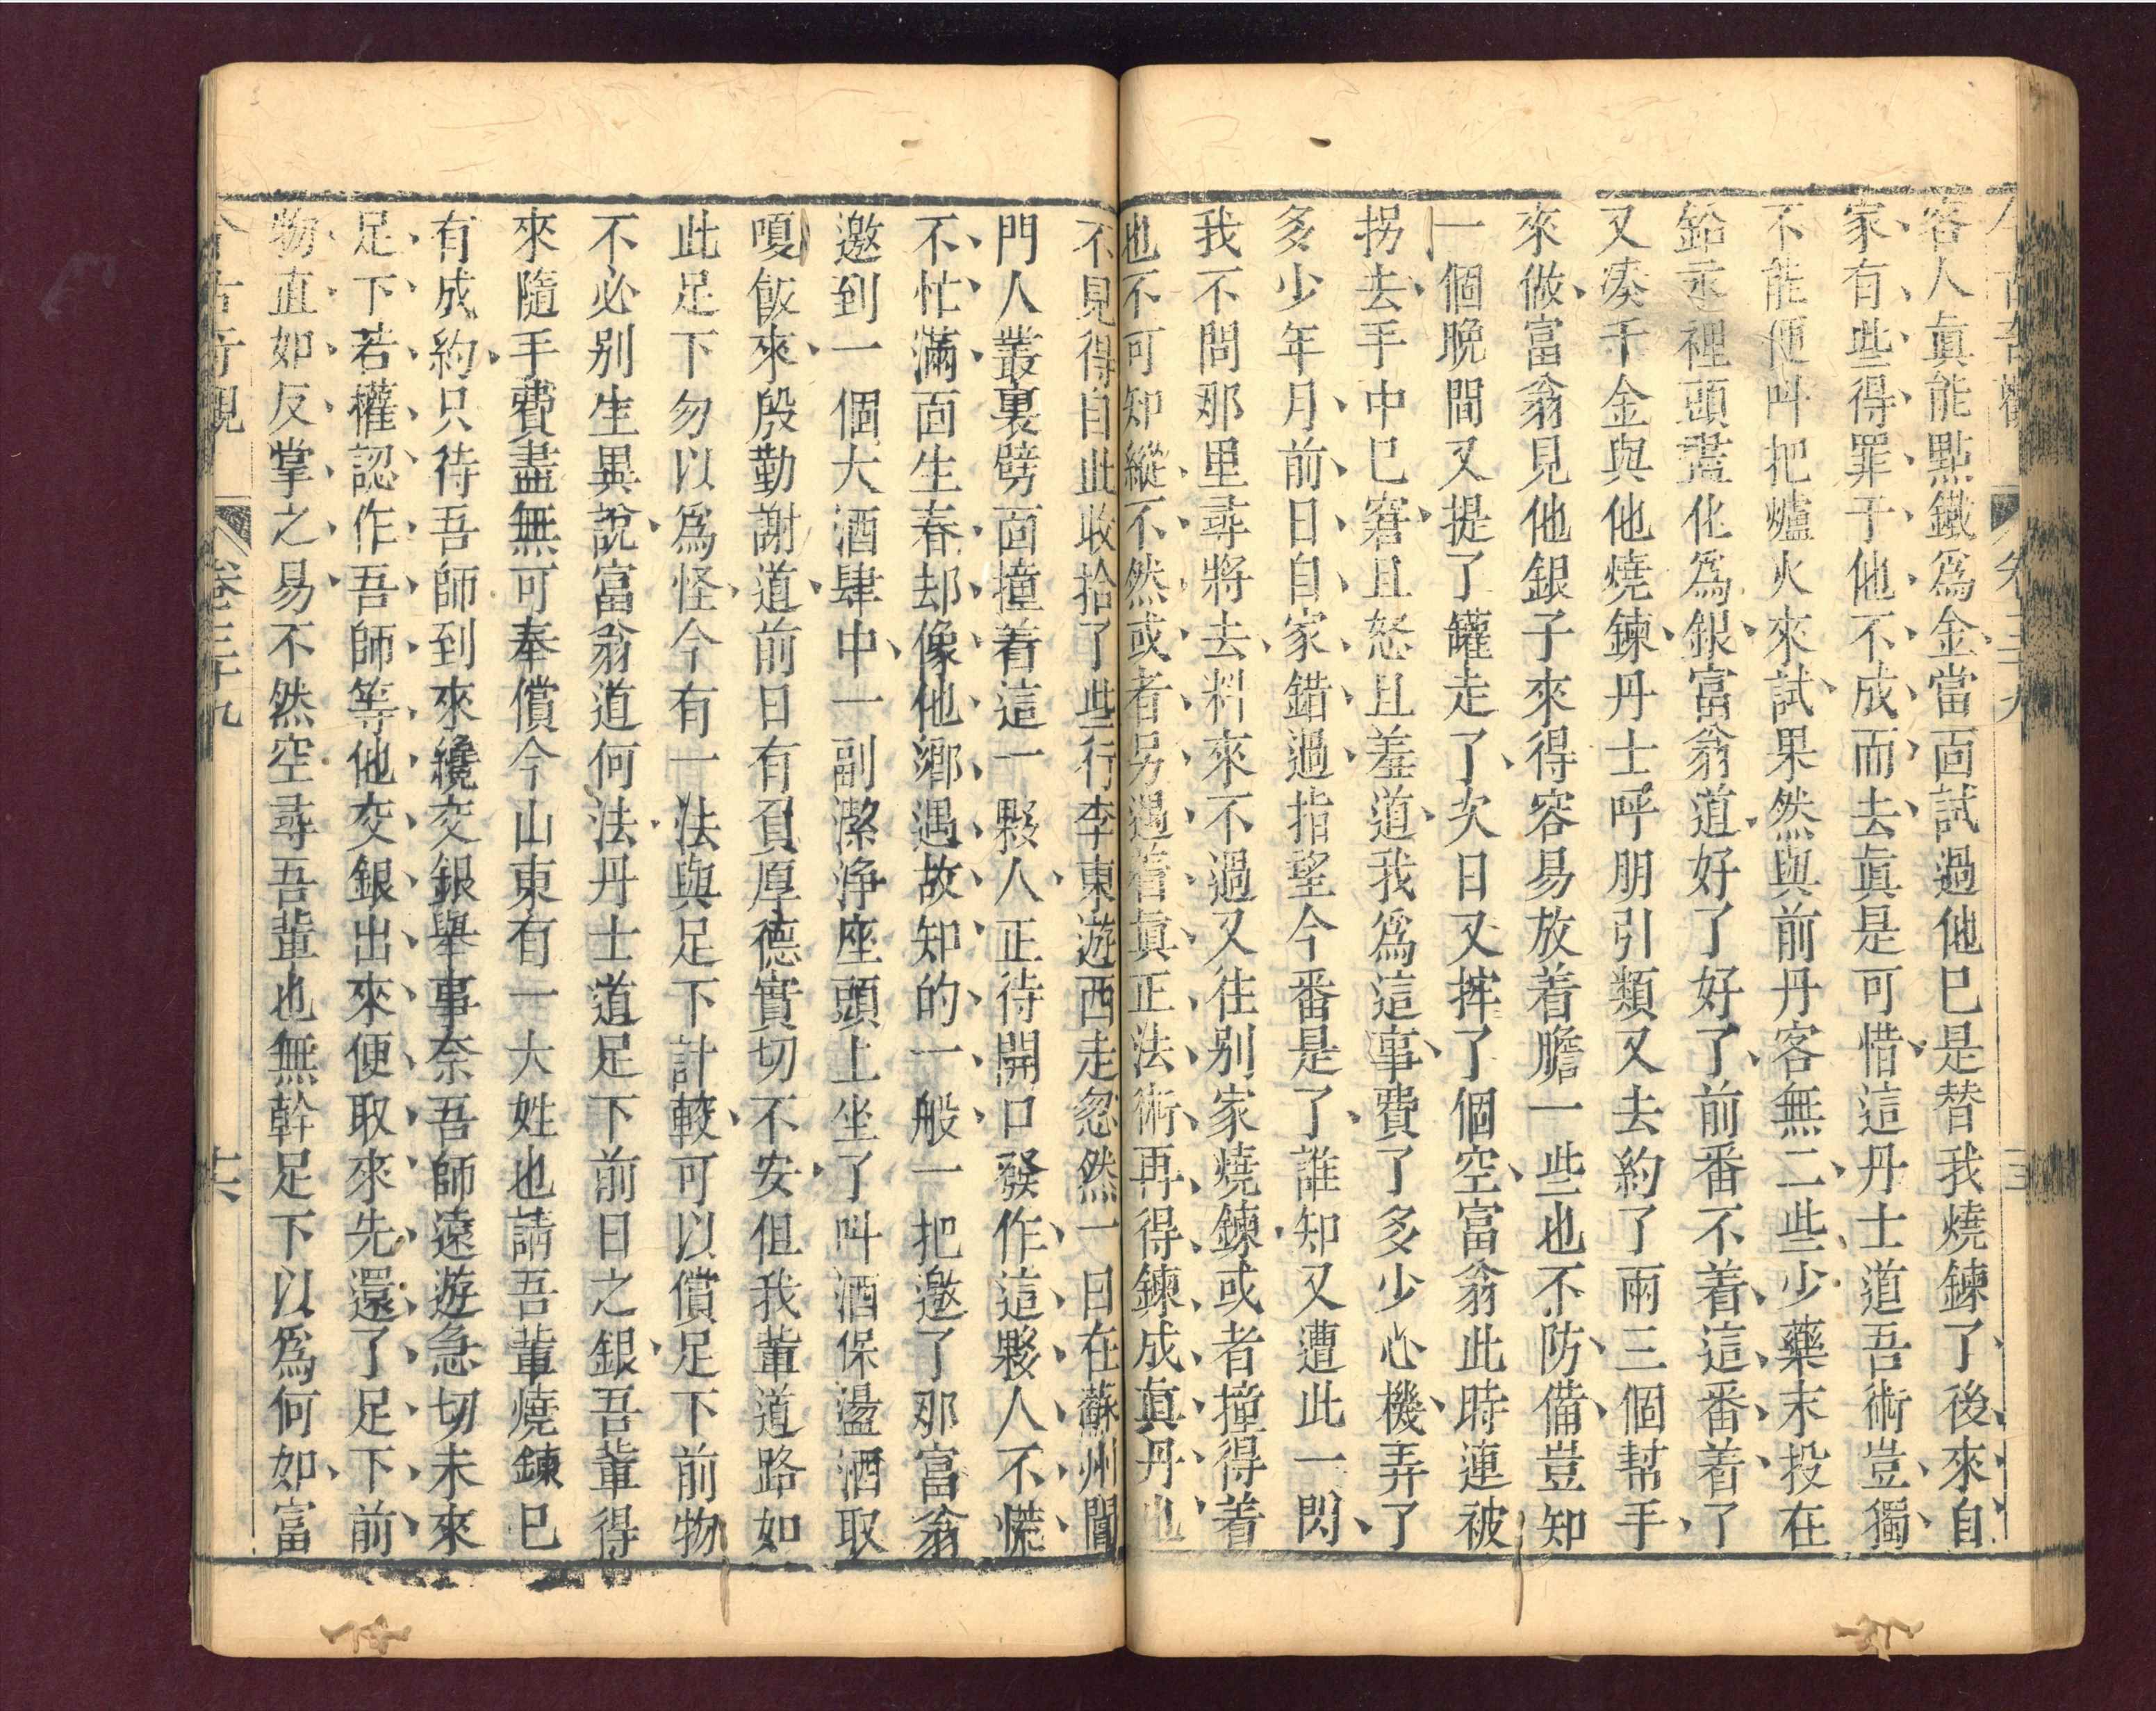 今古奇觀 卷三十九
客人眞能點鐵爲金當面試過他巳是替我燒鍊了後來自
家有些得罪于他不成而去眞是可惜這丹士道吾術豈獨
不能便叫把爐火來試果然與前丹客無二些少藥末投在
鉛汞裡頭盡化爲銀富翁道好了好了前番不着這番着了
又湊千金與他燒鍊丹士呼朋引類又去約了兩三個幫手
來做富翁見他銀子來得容易放着膽一些也不防備豈知
一個晚間又提了罐走了次日又摔了個空富翁此時連被
拐去手中巳窘且怒且羞道我爲這事費了多少心機弄了
多少年月前日自家錯過指望今番是了誰知又遭此一閃
我不問那里尋將去料來不過又往别家燒鍊或者撞得着
也不可知縱不然或者另遇着眞正法術再得鍊成眞丹也
不見得自此收拾了些行李東遊西走忽然一日在蘇州閶
門人叢裏劈面撞着這一夥人正待開口發作這夥人不慌
不忙滿面生春却像他鄉遇故知的一般一把邀了那富翁
邀到一個大酒肆中一副潔淨座頭上坐了叫酒保盪酒取
嗄飯來殷勤謝道前日有負厚德實切不安但我輩道路如
此足下勿以爲怪今有一法與足下計較可以償足下前物
不必别生異說富翁道何法丹士道足下前日之銀吾輩得
來隨手費盡無可奉償今山東有一大姓也請吾輩燒鍊巳
有成約只待吾師到來纔交銀舉事奈吾師遠遊急切未來
足下若權認作吾師等他交銀出來便取來先還了足下前
物直如反掌之易不然空尋吾輩也無幹足下以爲何如富
今古奇觀 卷三十九 十六